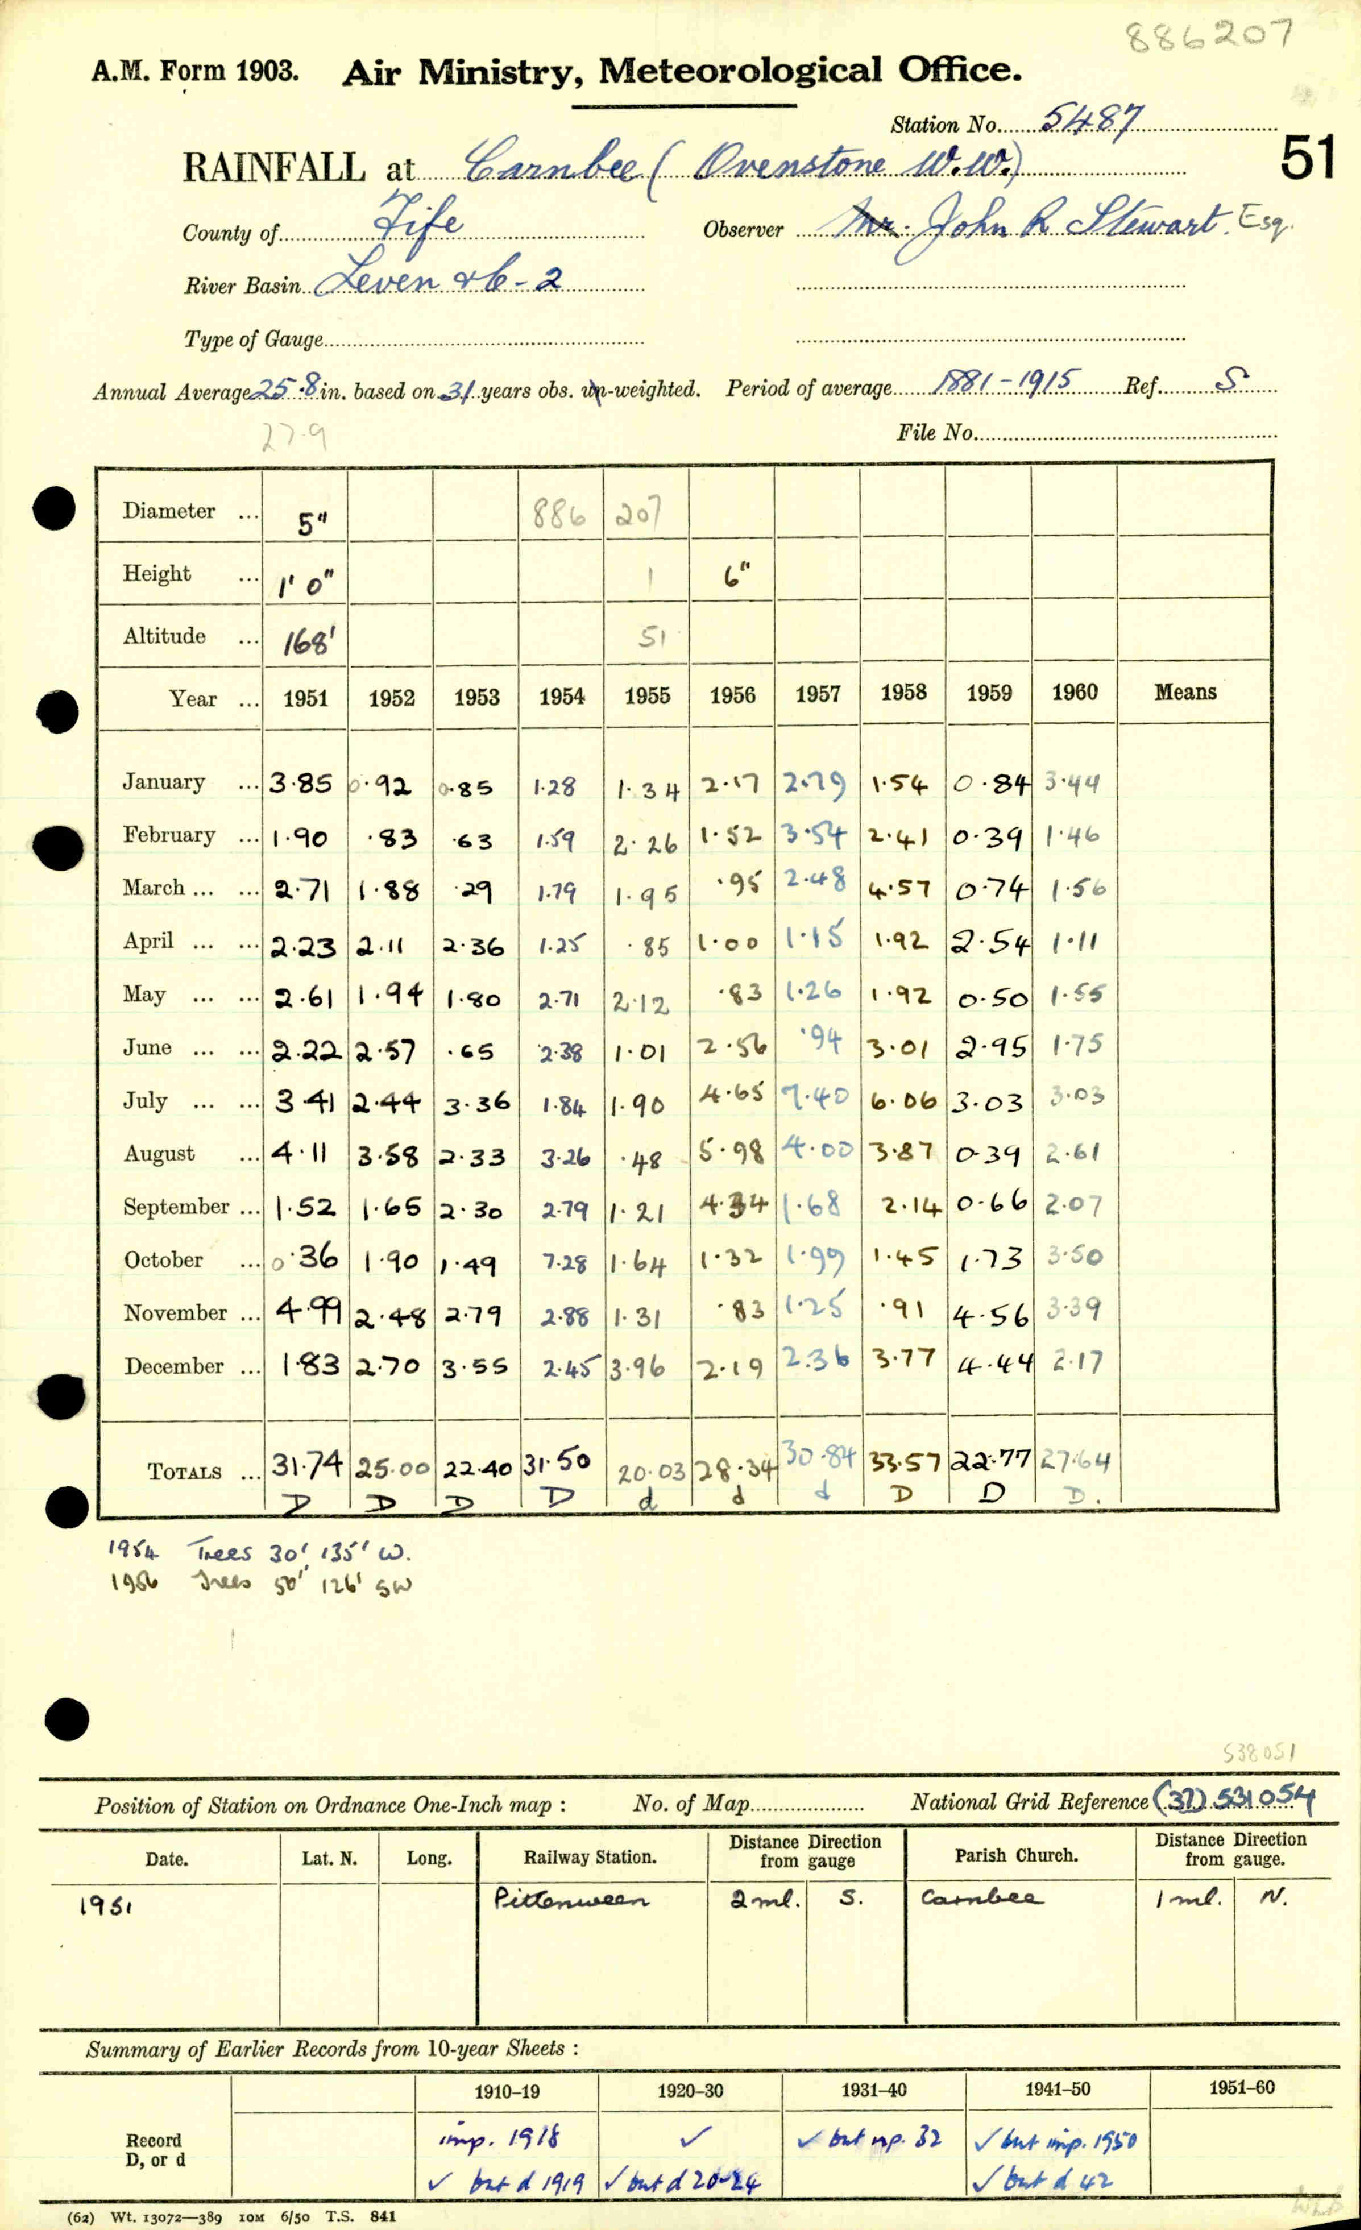 886207
A.M. Form 1903. Air Ministry, Meteorological Office.
Station No. 5487
51
RAINFALL at Carnbee (Ovenstone W.W.)
County of Fife Observer Mr. John R Stewart. Esq.
River Basin Leven & C - 2
Type of Gauge
Annual Average 25.8 in. based on 31 years obs. un-weighted. Period of average 1881-1915 Ref. S
27.9
File No.
Diameter ... 5" 886 207
Height ... 1' 0" 1 6"
Altitude ... 168' 51
Year ... 1951 1952 1953 1954 1955 1956 1957 1958 1959 1960 Means
January ... 3.85 0.92 0.85 1.28 1.34 2.17 2.79 1.54 0.84 3.44
February ... 1.90 .83 .63 1.59 2.26 1.52 3.54 2.41 0.39 1.46
March ... ... 2.71 1.88 .29 1.79 1.95 .95 2.48 4.57 0.74 1.56
April ... ... 2.23 2.11 2.36 1.25 .85 1.00 1.15 1.92 2.54 1.11
May ... ... 2.61 1.94 1.80 2.71 2.12 .83 1.26 1.92 0.50 1.55
June ... ... 2.22 2.57 .65 2.38 1.01 2.56 .94 3.01 2.95 1.75
July ... ... 3.41 2.44 3.36 1.84 1.90 4.65 7.40 6.06 3.03 3.03
August ... 4.11 3.58 2.33 3.26 .48 5.98 4.00 3.87 0.39 2.61
September ... 1.52 1.65 2.30 2.79 1.21 4.34 1.68 2.14 0.66 2.07
October ... 0.36 1.90 1.49 7.28 1.64 1.32 1.99 1.45 1.73 3.50
November ... 4.99 2.48 2.79 2.88 1.31 .83 1.25 .91 4.56 3.39
December ... 1.83 2.70 3.55 2.45 3.96 2.19 2.36 3.77 4.44 2.17
TOTALS ... 31.74 25.00 22.40 31.50 20.03 28.34 30.84 33.57 22.77 27.64
D D D D d d d D D D.
1954 Trees 30' 135' W.
1956 Trees 50' 126' SW
538051
Position of Station on Ordnance One-Inch map : No. of Map National Grid Reference (37) 531054
Date. Lat. N. Long. Railway Station. Distance from gauge Direction Parish Church. Distance from gauge. Direction
1951 Pittenween 2 ml. S. Carnbee 1 ml. N.
Summary of Earlier Records from 10-year Sheets :
1910-19 1920-30 1931-40 1941-50 1951-60
Record imp. 1918 ✓ ✓ but imp. 32 ✓ but imp. 1950
D, or d ✓ but d 1919 ✓ but d 20-24 ✓ but d 42
(62) Wt. 13072—389 10M 6/50 T.S. 841